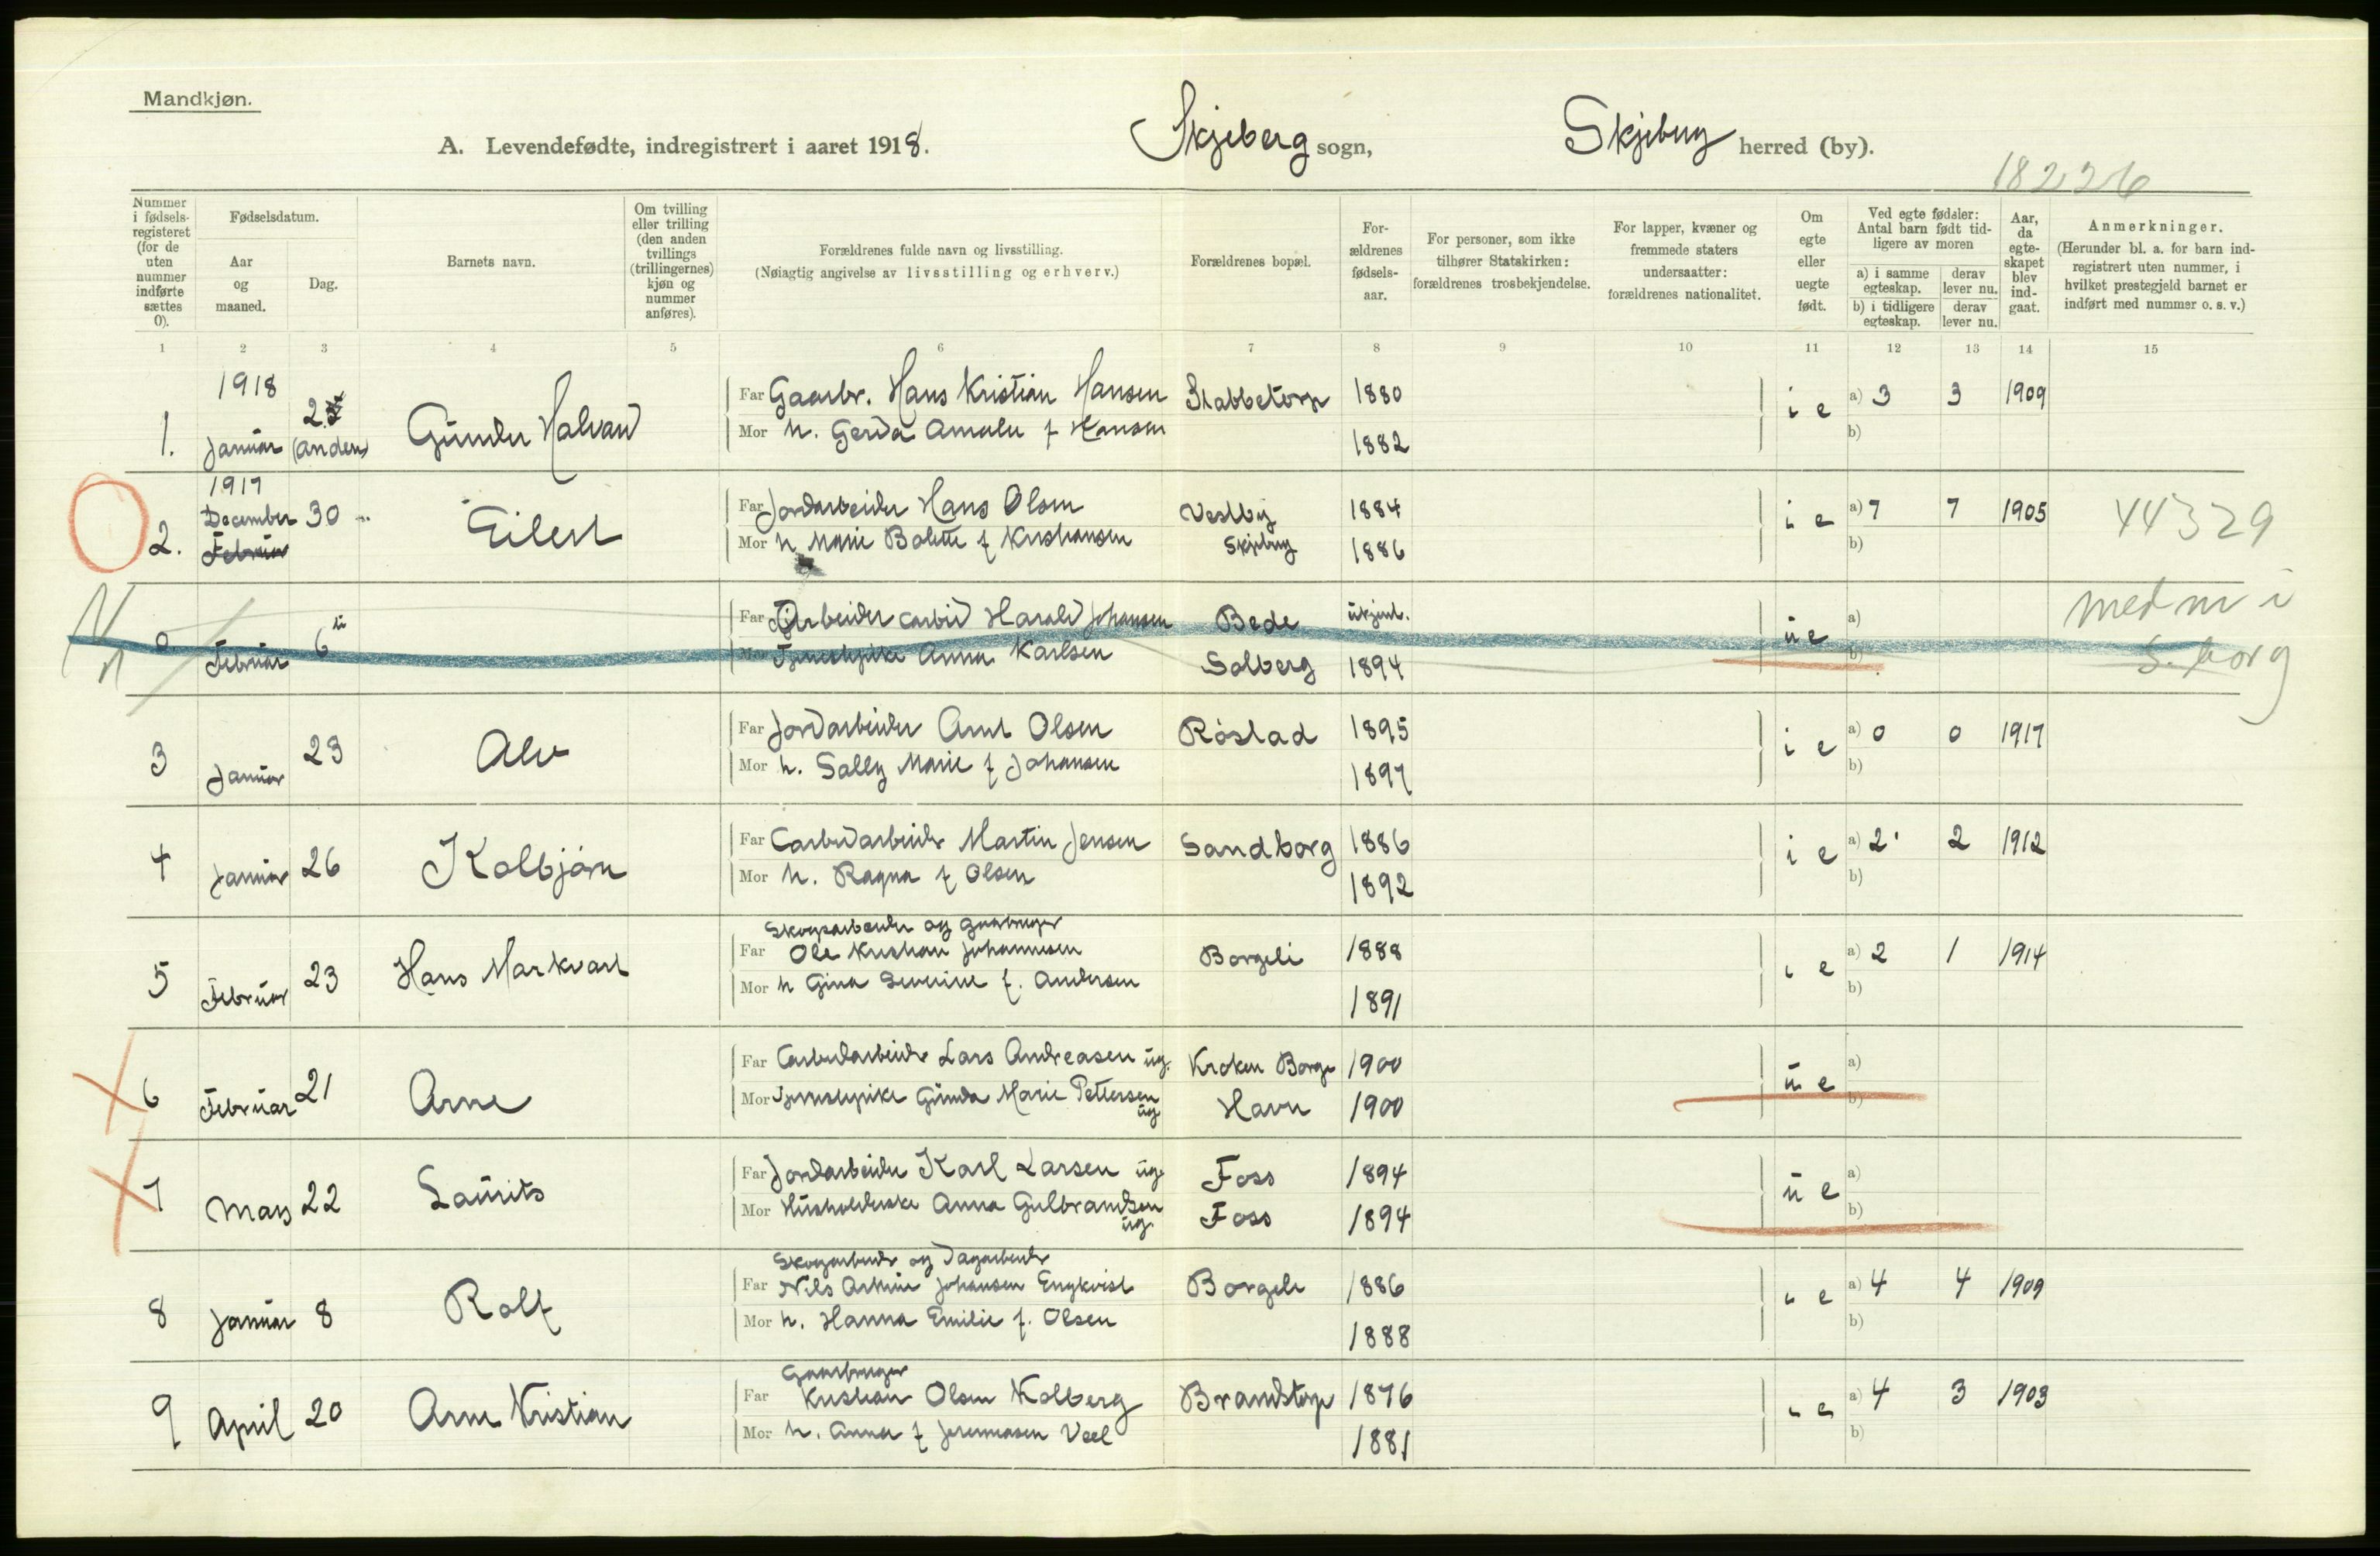 Mandkjøn.
A. Levendefødte, indregistrert i aaret 1918. Skjeberg sogn, Skjeberg herred (by).
18226
Nummer i fødsels-registeret (for de uten nummer indførte sættes 0).
Fødselsdatum.
Aar og maaned.
Dag.
Barnets navn.
Om tvilling eller trilling (den anden tvillings (trillingernes) kjøn og nummer anføres).
Forældrenes fulde navn og livsstilling.
(Nøiagtig angivelse av livsstilling og erhverv.)
Forældrenes bopæl.
For-ældrenes fødsels-aar.
For personer, som ikke tilhører Statskirken: forældrenes trosbekjendelse.
For lapper, kvæner og fremmede staters undersaatter: forældrenes nationalitet.
Om egte eller uegte født.
Ved egte fødsler: Antal barn født tid-ligere av moren
a) i samme egteskap. derav lever nu.
b) i tidligere egteskap. derav lever nu.
Aar, da egte-skapet blev ind-gaat.
Anmerkninger.
(Herunder bl. a. for barn ind-registrert uten nummer, i hvilket prestegjeld barnet er indført med nummer o. s. v.)
1 2 3 4 5 6 7 8 9 10 11 12 13 14 15
1918
Far Gaarbr. Hans Kristian Hansen Stabbetorp 1880 i e a) 3 3 1909
1. Januar 2 (anden) Gunder Halvard
Mor h. Gerda Amalie f Hansen 1882 b)
1917
Far Jordarbeider Hans Olsen Vestby 1884 i e a) 7 7 1905 44329
2. December 30 Eilert
Februar
Mor h Marie Bolette f Kristiansen Skjeberg 1886 b)
Far Arbeider Carbid Harald Johansen Bede ukjent. u e a) med nr i
0 Februar 6
Mor Tjenestepike Anna Karlsen Solberg 1894 b) S. borg
Far Jordarbeider Arnt Olsen Röstad 1895 i e a) 0 0 1917
3 Januar 23 Alv
Mor h. Sally Marie f Johansen 1897 b)
Far Carbidarbeider Martin Jensen Sandborg 1886 i e a) 2 2 1912
4 Januar 26 Kolbjörn
Mor h. Ragna f Olsen 1892 b)
Skogsarbeider og gaardbruger
Far Ole Kristian Johannesen Borgeli 1888 i e a) 2 1 1914
5 Februar 23 Hans Markvart
Mor h Gina Severine f. Andersen 1891 b)
Far Carbidarbeider Lars Andreasen ug. Kroken Borge 1900 u e a)
6 Februar 21 Arne
Mor Tjenestepike Gunda Marie Pettersen ug Havn 1900 b)
Far Jordarbeider Karl Larsen ug Foss 1894 u e a)
7 Mars 22 Laurits
Mor Husholderske Anna Gulbrandsen ug. Foss 1894 b)
Skogarbeider og Dagarbeider
Far Nils Arthur Johansen Engkvist Borgeli 1886 i e a) 4 4 1909
8 Januar 8 Rolf
Mor h. Hanna Emilie f. Olsen 1888 b)
Gaardbruger
Far Kristian Olsen Kolberg Brandstorp 1876 i e a) 4 3 1903
9 April 20 Arne Kristian
Mor h. Anna f Veel 1881 b)